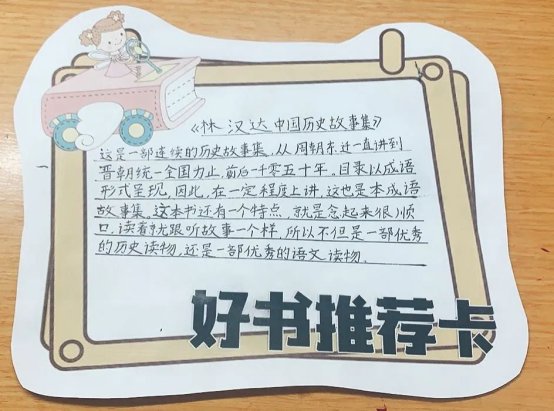 《林汉达中国历史故事集》
这是一部连续的历史故事集，从周朝东迁一直讲到
晋朝统一全国为止，前后一千零五十年。目录以成语
形式呈现，因此，在一定程度上讲，这也是本成语
故事集。这本书还有一个特点，就是念起来很顺
口，读着就跟听故事一个样，所以不但是一部优秀
的历史读物，还是一部优秀的语文读物。
好书推荐卡